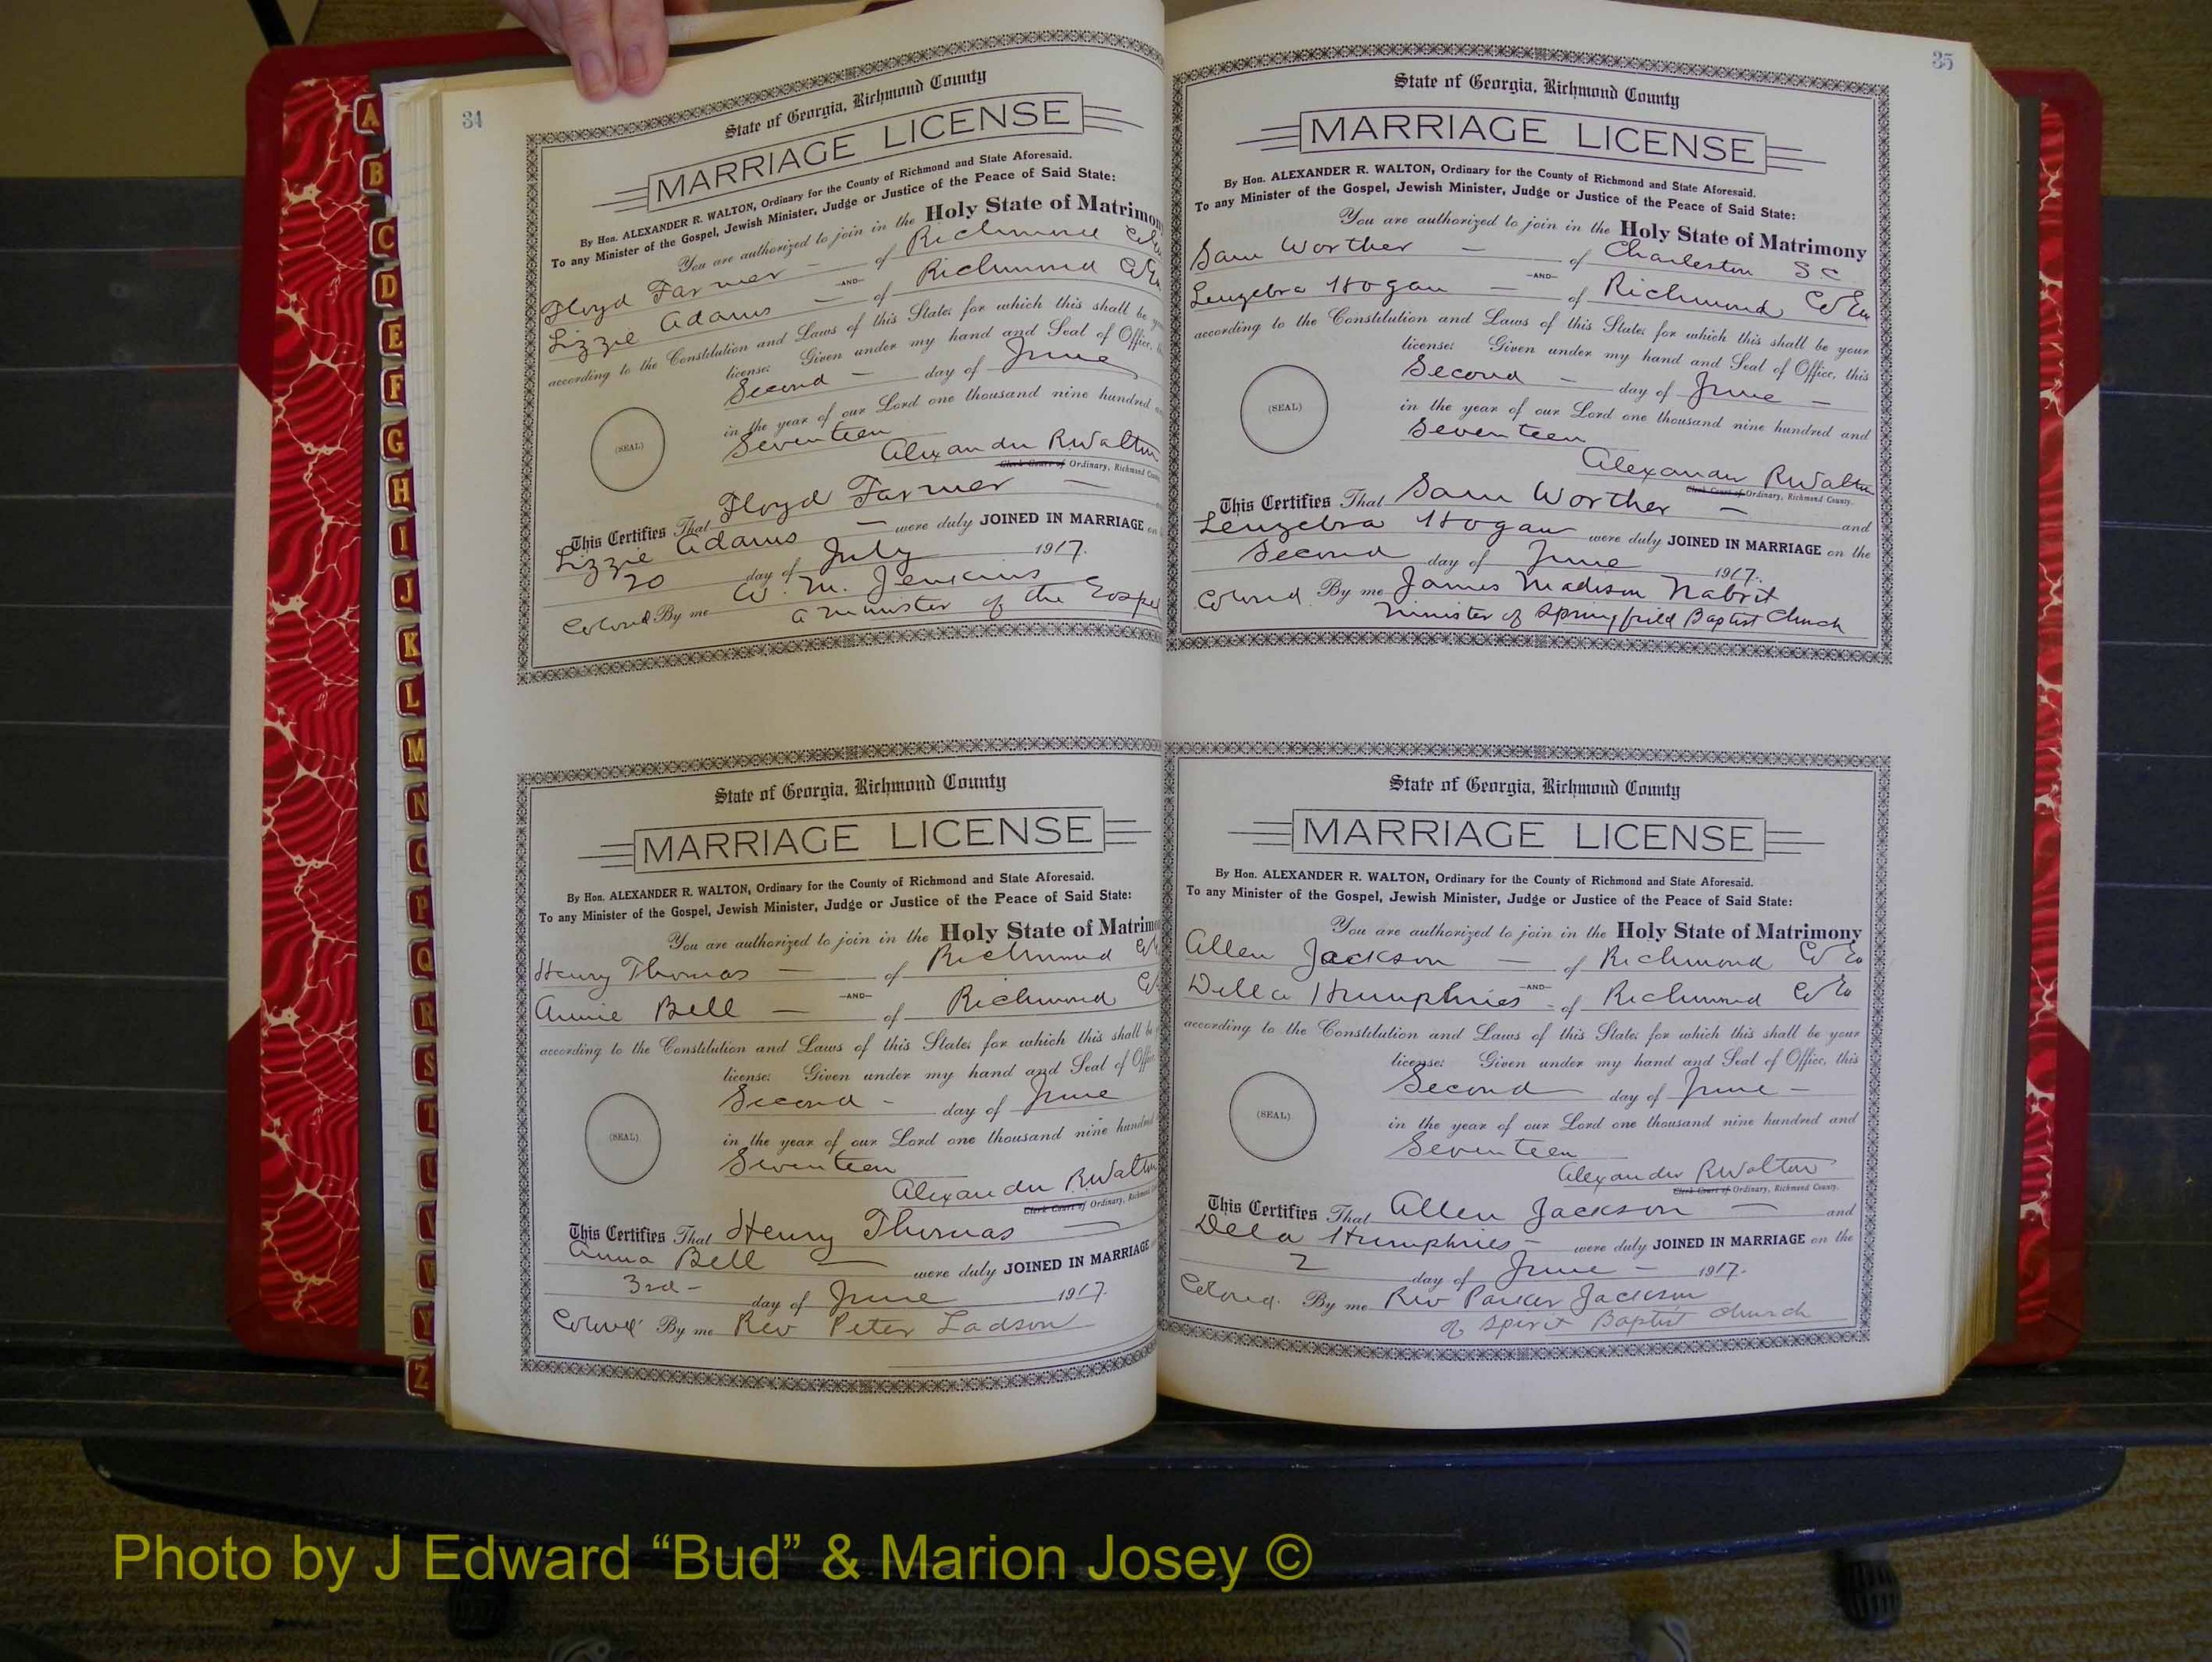 A
B
C
D
E
F
G
H
I
J
K
L
M
N
O
P
Q
R
S
T
U
V
W
Y
Z
34
State of Georgia, Richmond County
MARRIAGE LICENSE
By Hon. ALEXANDER R. WALTON, Ordinary for the County of Richmond and State Aforesaid.
To any Minister of the Gospel, Jewish Minister, Judge or Justice of the Peace of Said State:
You are authorized to join in the Holy State of Matrimony
Floyd Farmer — of Richmond
—AND—
Lizzie Adams — of Richmond
according to the Constitution and Laws of this State; for which this shall be
license: Given under my hand and Seal of Office,
Second — day of June
in the year of our Lord one thousand nine hundred
Seventeen
(SEAL)
Alexander R Walton
Clerk Court of Ordinary, Richmond
This Certifies That Floyd Farmer —
Lizzie Adams — were duly JOINED IN MARRIAGE on
20 day of July 1917.
Colored By me W. M. Jenkins
a minister of the Gospel
State of Georgia, Richmond County
MARRIAGE LICENSE
By Hon. ALEXANDER R. WALTON, Ordinary for the County of Richmond and State Aforesaid.
To any Minister of the Gospel, Jewish Minister, Judge or Justice of the Peace of Said State:
You are authorized to join in the Holy State of Matrim
Henry Thomas — of Richmond
—AND—
Annie Bell — of Richmond
according to the Constitution and Laws of this State; for which this shall be
license: Given under my hand and Seal of
Second - day of June
in the year of our Lord one thousand nine hundred
Seventeen
(SEAL)
Alexander R Walton
Clerk Court of Ordinary,
This Certifies That Henry Thomas —
Anna Bell — were duly JOINED IN MARRIAGE
3rd - day of June 1917.
Colored By me Rev Peter Ladson
35
State of Georgia, Richmond County
MARRIAGE LICENSE
By Hon. ALEXANDER R. WALTON, Ordinary for the County of Richmond and State Aforesaid.
To any Minister of the Gospel, Jewish Minister, Judge or Justice of the Peace of Said State:
You are authorized to join in the Holy State of Matrimony
Sam Worther — of Charleston S C
—AND—
Hogan — of Richmond Co Ga
according to the Constitution and Laws of this State; for which this shall be your
license: Given under my hand and Seal of Office, this
Second — day of June —
in the year of our Lord one thousand nine hundred and
Seventeen
(SEAL)
Alexander R Walton
Clerk Court of Ordinary, Richmond County.
This Certifies That Sam Worther — and
Hogan were duly JOINED IN MARRIAGE on the
Second day of June 1917.
Colored By me James Madison Nabrit
Minister of Springfield Baptist Church
State of Georgia, Richmond County
MARRIAGE LICENSE
By Hon. ALEXANDER R. WALTON, Ordinary for the County of Richmond and State Aforesaid.
To any Minister of the Gospel, Jewish Minister, Judge or Justice of the Peace of Said State:
You are authorized to join in the Holy State of Matrimony
Allen Jackson — of Richmond Co Ga
—AND—
Della Humphries - of Richmond Co Ga
according to the Constitution and Laws of this State; for which this shall be your
license: Given under my hand and Seal of Office, this
Second day of June -
in the year of our Lord one thousand nine hundred and
Seventeen
(SEAL)
Alexander R Walton
Clerk Court of Ordinary, Richmond County.
This Certifies That Allen Jackson — and
Dela Humphries - were duly JOINED IN MARRIAGE on the
2 day of June - 1917.
Colored. By me Rev Parker Jackson
of Spirit Baptist Church
Photo by J Edward “Bud” & Marion Josey ©